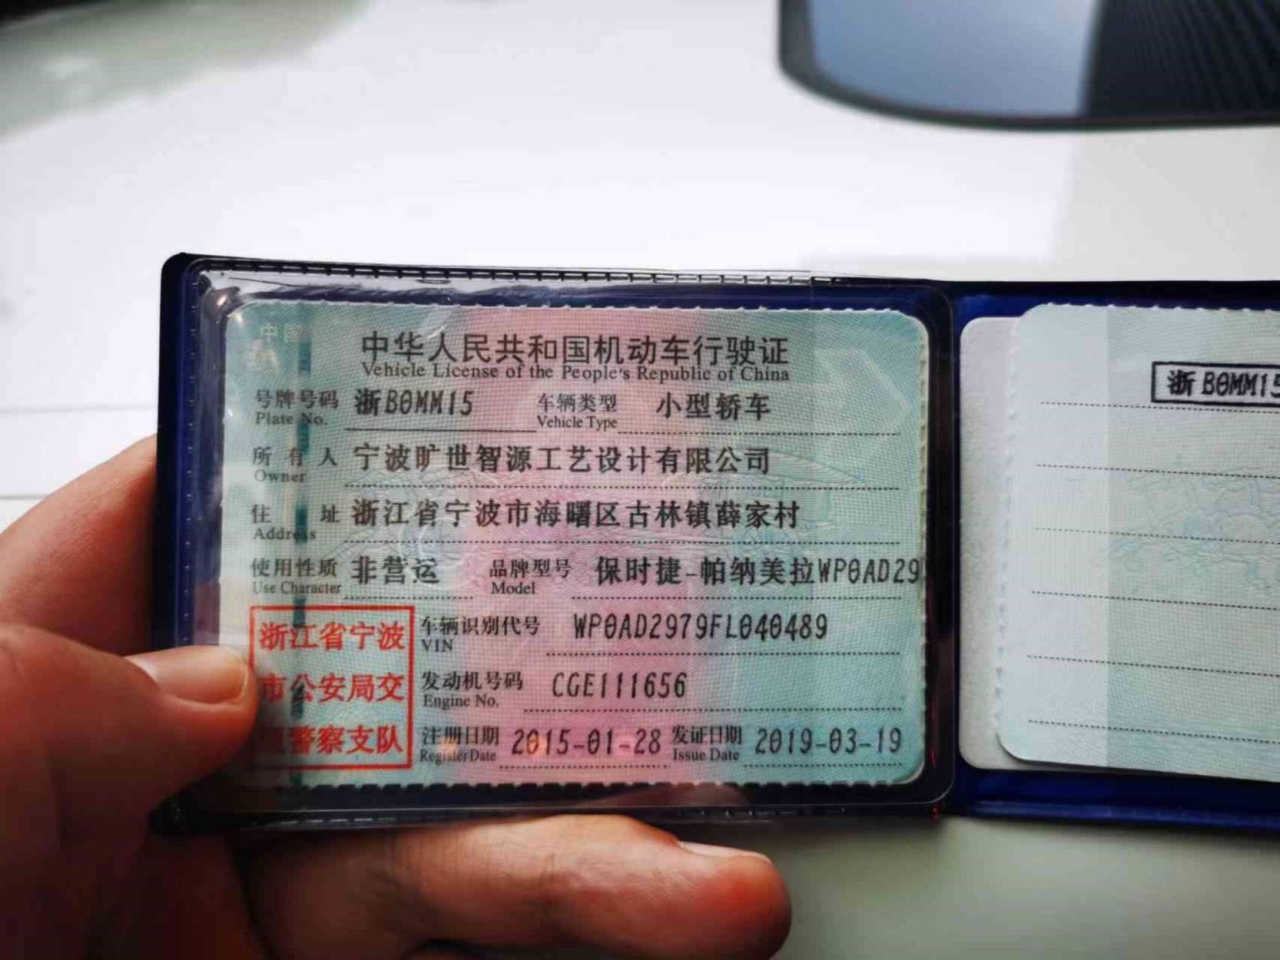 中国
中华人民共和国机动车行驶证
Vehicle License of the People's Republic of China
号牌号码 浙B0MM15 车辆类型 小型轿车
Plate No. Vehicle Type
所有人 宁波旷世智源工艺设计有限公司
Owner
住址 浙江省宁波市海曙区古林镇薛家村
Address
使用性质 非营运 品牌型号 保时捷-帕纳美拉WP0AD29
Use Character Model
浙江省宁波
市公安局交
警察支队
车辆识别代号 WP0AD2979FL040489
VIN
发动机号码 CGE111656
Engine No.
注册日期 2015-01-28 发证日期 2019-03-19
Register Date Issue Date
浙B0MM15